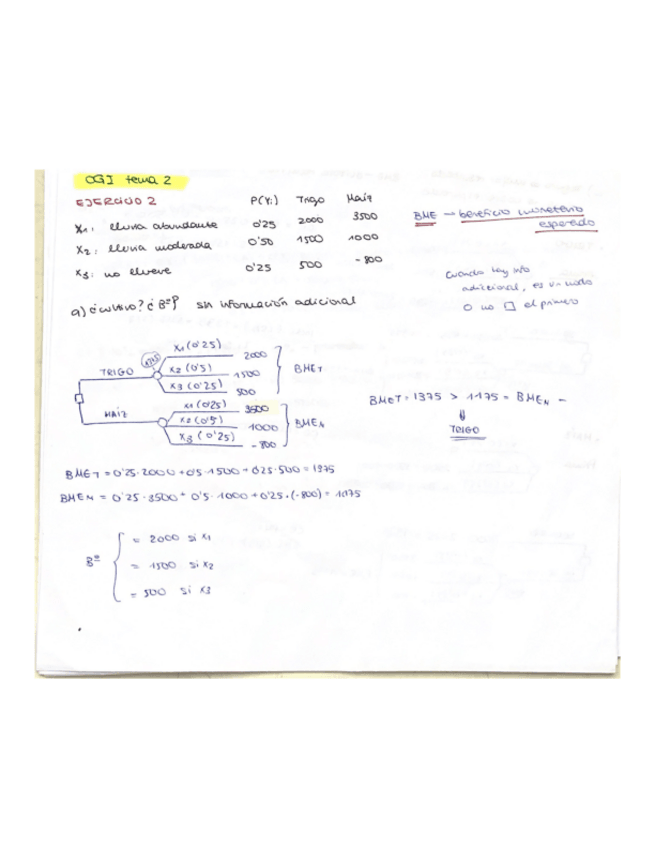 OGI tema 2
EJERCICIO 2 P(Yi) Trigo Maíz
X1: lluvia abundante 0'25 2000 3500
X2: lluvia moderada 0'50 1500 1000
X3: no llueve 0'25 500 -800
BME → beneficio monetario
esperado
Cuando hay info
adicional, es un nodo
O no □ el primero
a) ¿cultivo? ¿Bº? sin información adicional
TRIGO X1 (0'25) 2000
X2 (0'5) 1500
X3 (0'25) 500
BMET
MAÍZ X1 (0'25) 3500
X2 (0'5) 1000
X3 (0'25) -800
BMEM
BMET = 1375 > 1175 = BMEM -
⇓
TRIGO
BMET = 0'25·2000 + 0'5·1500 + 0'25·500 = 1375
BMEM = 0'25·3500 + 0'5·1000 + 0'25·(-800) = 1175
Bº = 2000 si X1
= 1500 si X2
= 500 si X3